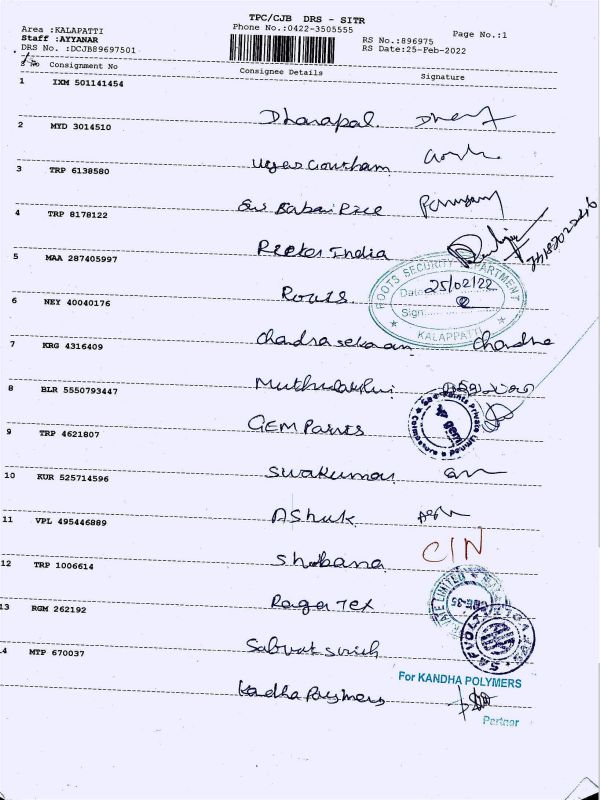 TPC/CJB DRS - SITR
Phone No.:0422-3505555
Page No.:1
Area :KALAPATTI
Staff :AYYANAR
DRS No. :DCJB89697501
RS No.:896975
RS Date:25-Feb-2022
S No Consignment No Consignee Details Signature
1 IXM 501141454
Dharapal
2 MYD 3014510
Goutham
3 TRP 6138580
Sri Babai Rice
4 TRP 8178122
India
5 MAA 287405997
Roots
ROOTS SECURITY DEPARTMENT
Date 25/02/22
Sign
KALAPPATTI
6 NEY 40040176
Chandrasekaran Chandra
7 KRG 4316409
Muthulakshmi
8 BLR 5550793447
GEM Paints
gem
9 TRP 4621807
Sivakumar
10 KUR 525714596
Ashok
11 VPL 495446889
CIN
12 TRP 1006614
Shobana
13 RGM 262192
Raga Tex
14 MTP 670037
Kandha Polymers
For KANDHA POLYMERS
Partner